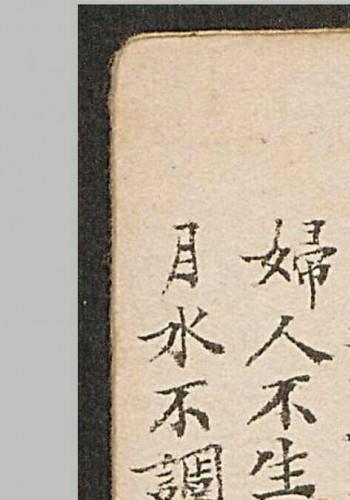 婦人不生
月水不調